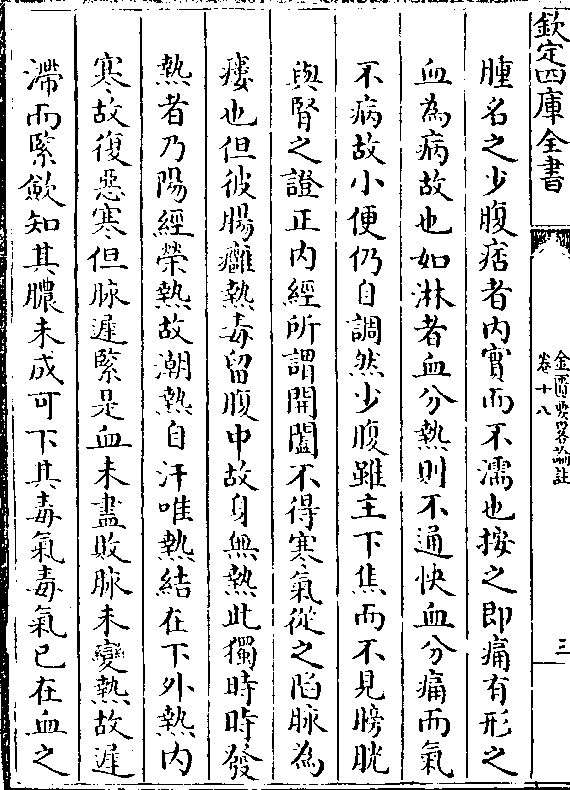 欽定四庫全書
金匱要畧論註
卷十八
三
腫名之少腹痞者内實而不濡也按之即痛有形之
血為病故也如淋者血分熱則不通快血分痛而氣
不病故小便仍自調然少腹雖主下焦而不見膀胱
與腎之證正内經所謂開闔不得寒氣從之陷脉為
瘻也但彼腸癰熱毒留腹中故身無熱此獨時時發
熱者乃陽經榮熱故潮熱自汗唯熱結在下外熱内
寒故復惡寒但脉遲緊是血未盡敗脉未變熱故遲
滯而緊斂知其膿未成可下其毒氣毒氣已在血之